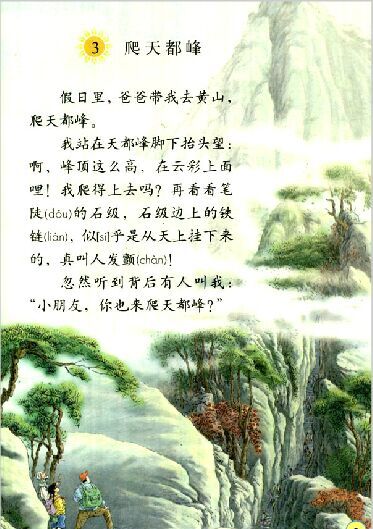 3 爬天都峰
假日里，爸爸带我去黄山，
爬天都峰。
我站在天都峰脚下抬头望：
啊，峰顶这么高，在云彩上面
哩！我爬得上去吗？再看看笔
陡(dǒu)的石级，石级边上的铁
链(liàn)，似(sì)乎是从天上挂下来
的，真叫人发颤(chàn)！
忽然听到背后有人叫我：
“小朋友，你也来爬天都峰？”